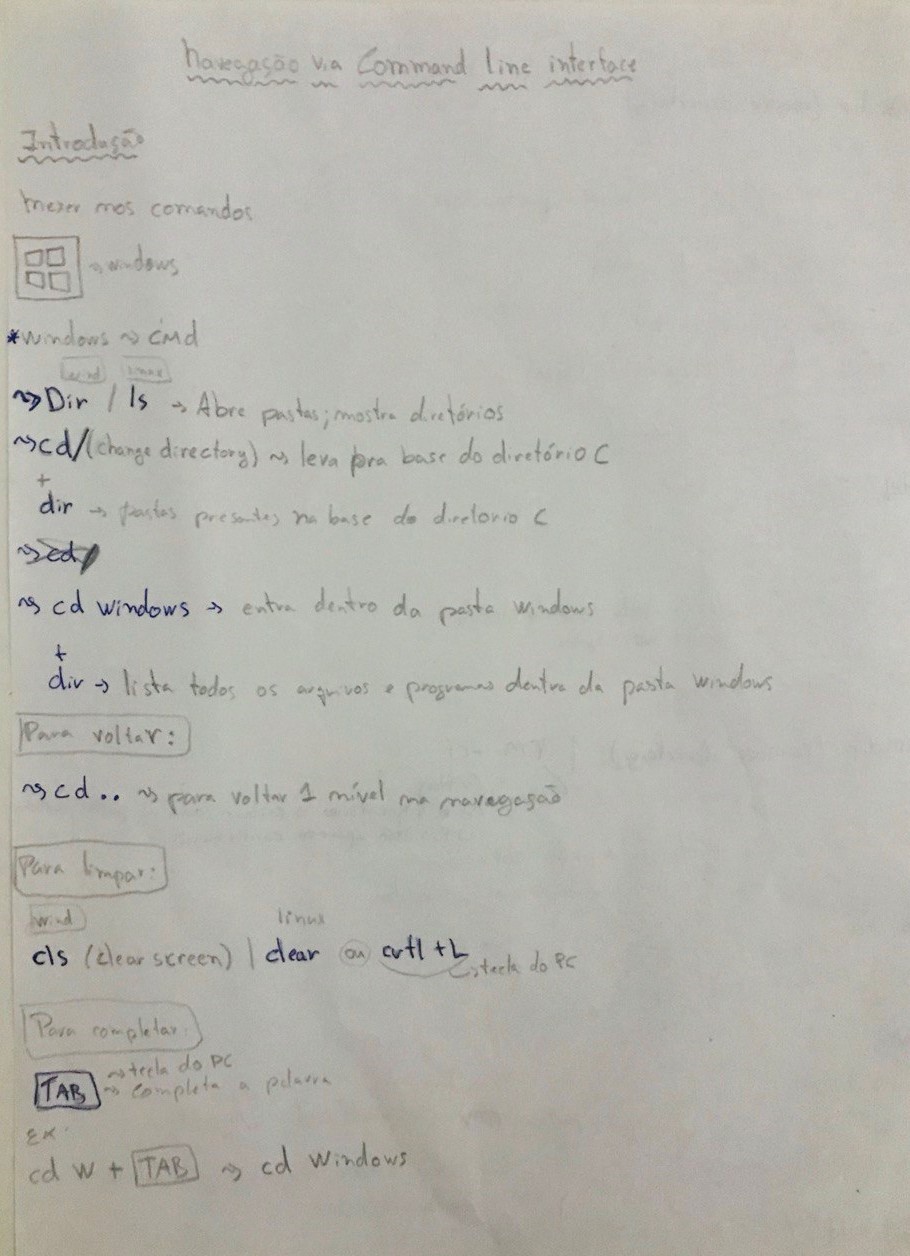 Navegação via Command line interface
Introdução
Mexer nos comandos
→ windows
*windows ~> CMD
wind linux
~> Dir / ls → Abre pastas; mostra diretórios
~> cd/ (change directory) ~> leva pra base do diretório C
+
dir → pastas presentes na base do diretorio C
~> cd/
~> cd windows → entra dentro da pasta windows
+
dir → lista todos os arquivos e programas dentro da pasta windows
Para voltar:
~> cd .. ~> para voltar 1 nível na navegação
Para limpar:
wind linux
cls (clear screen) | clear ou crtl + L → tecla do PC
Para completar:
~> tecla do PC
TAB ~> completa a palavra
Ex:
cd w + TAB ~> cd windows